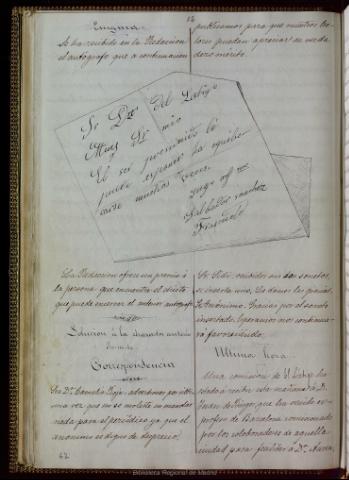 12
Enigma
Se ha recibido en la Redaccion
el autógrafo que a continuacion
publicamos para que nuestros lec-
tores puedan apreciar su verda-
dero mérito.
Sr Dtor del Látigo
Muy Sr mio
El es
puede espresar la
entre nuestros
Salbador Sanchez
Frascuelo
La Redaccion ofrece un premio á
la persona que encuentre el
que puede encerrar el anterior autógrafo
Solucion á la charada anterior
Correspondencia
Sra Da Camelia Roja: advertimos por última
vez que no se moleste en mandar
nada para el periódico ya que el
anonimo es digno de desprecio.
Sr. Sidi: recibidos sus dos sonetos,
se inserta uno. Le damos las gracias.
Sr. Anónimo: Gracias por el soneto
insertado. Esperamos nos continua-
rá favoreciendo.
Ultima hora
Una comision de El Látigo ha
salido á recibir esta mañana á D.
Juan de Hugo, que ha venido es-
profeso de Barcelona comisionado
por los colaboradores de aquella
ciudad para felicitar á Da
62
Biblioteca Regional de Madrid